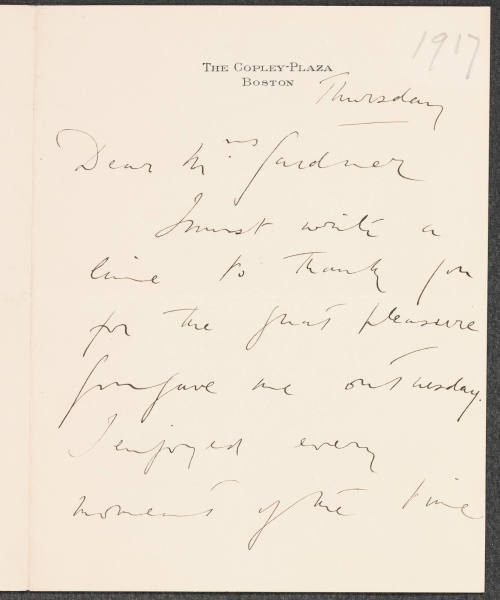 1917
THE COPLEY-PLAZA
BOSTON
Thursday
Dear Mrs Gardner
I must write a
line to thank you
for the great pleasure
you gave me on Tuesday.
I enjoyed every
moment of the time